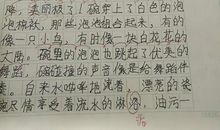 腾，美丽极了！碗穿上了白色的泡
泡棉袄，那些泡泡组合起来，有的
像一只小鸟，有时像一块白茫茫的
大陆。碗里的泡泡也跳起了优美的
舞蹈，碗碰撞的声音像是给舞蹈伴
奏。自来水哗哗地流着，漂亮的瓷
碗尽情享受着流水的淋浴，油污一